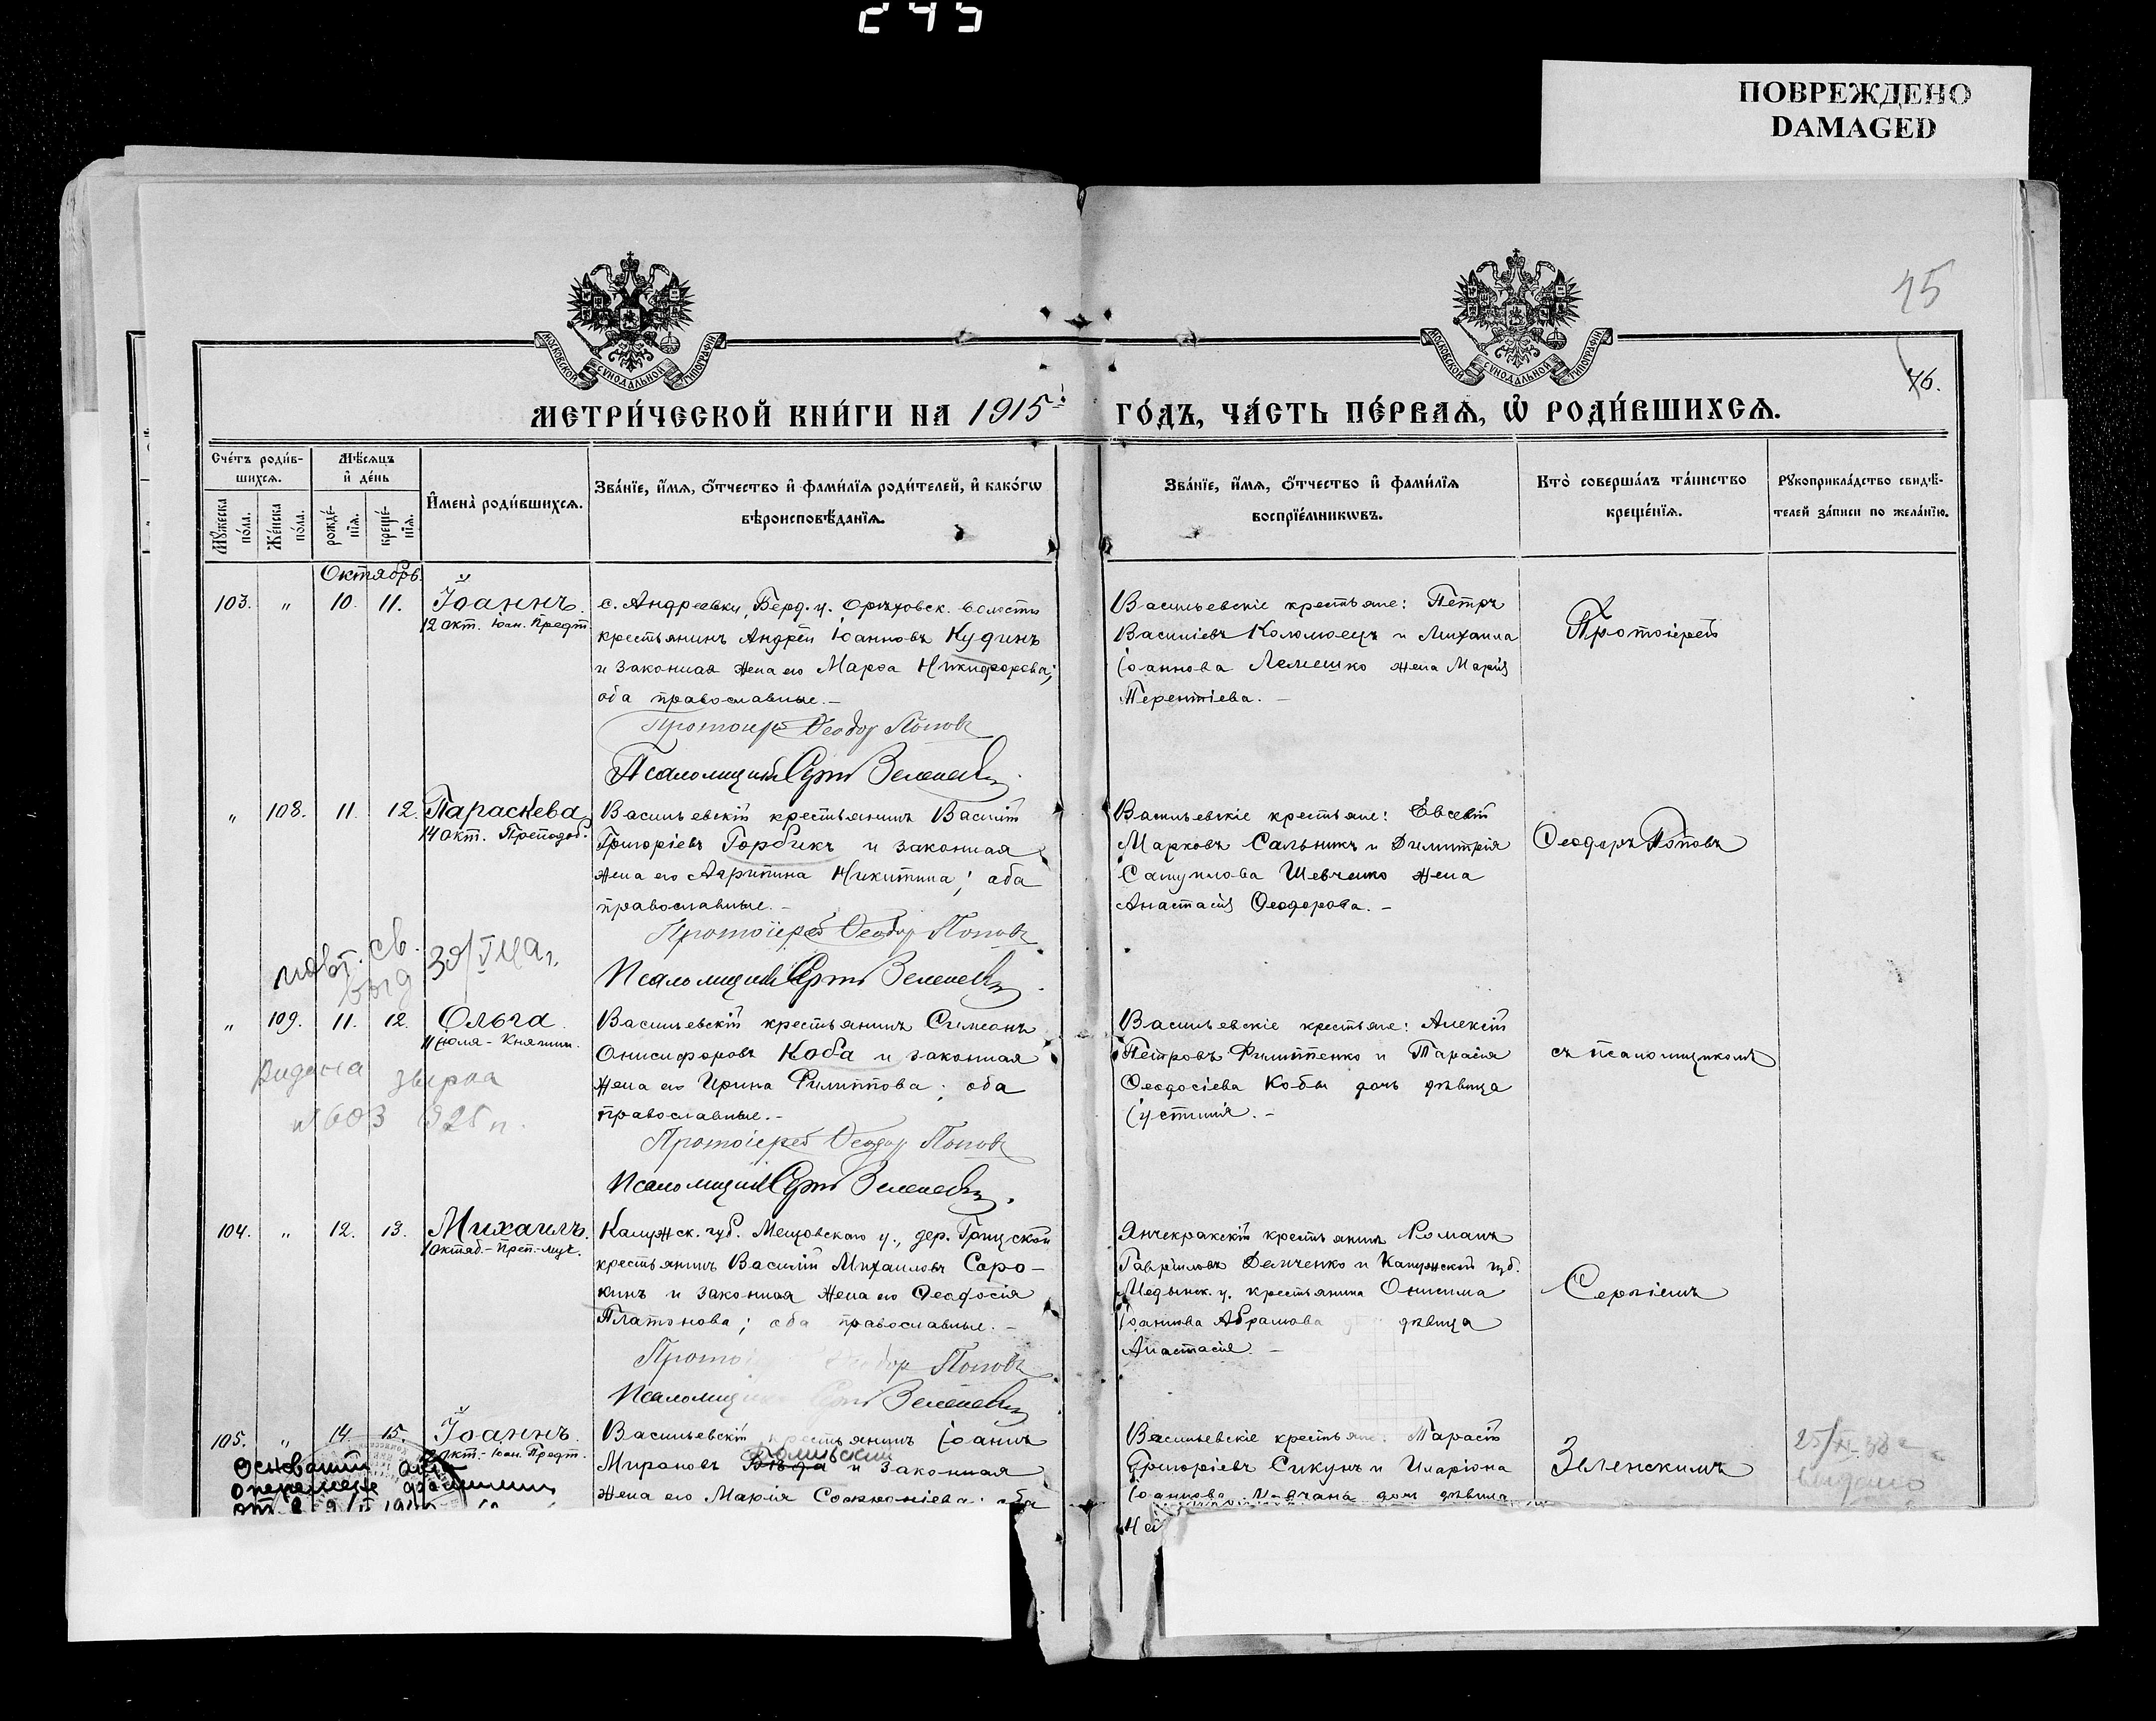 245
ПОВРЕЖДЕНО
DAMAGED
75
76.
МОСКОВСКОЙ СѴНОДАЛЬНОЙ ТИПОГРАФІИ
МОСКОВСКОЙ СѴНОДАЛЬНОЙ ТИПОГРАФІИ
МЕТРИ́ЧЕСКОЙ КНИ́ГИ НА 1915 ГО́ДЪ, ЧА́СТЬ ПЕ́РВАѦ, Ѡ҆ РОДИ́ВШИХСѦ.
Сче́тъ роди́в-
шихсѧ.
Мѣ́сѧцъ
и҆ де́нь
Мꙋ́жеска по́ла.
Же́нска по́ла.
рожде́-
нїѧ.
креще́-
нїѧ.
И҆мена̀ роди́вшихсѧ.
Зва́нїе, и҆́мѧ, ѻ҆́тчество и҆ фами́лїѧ роди́телей, и҆ како́гѡ
вѣроисповѣ́данїѧ.
Зва́нїе, и҆́мѧ, ѻ҆́тчество и҆ фами́лїѧ
воспрїе́мникѡвъ.
Кто̀ соверша́лъ та́инство
креще́нїѧ.
Рꙋкоприкла́дство свидѣ́-
телей за́писи по жела́нїю.
Октябрь
103. " 10. 11. Іоаннъ.
12 окт. Іоан. Предт.
с. Андреевки, Берд. у. Орѣховск. волости
крестьянинъ Андрей Іоанновъ Кудинъ
и законная жена его Марѳа Никифорова;
оба православные. –
Протоіерей Ѳеодор Поповъ
Псаломщикъ Сергій
Васильевскіе крестьяне: Петръ
Василіевъ Коломоецъ и Михаила
Іоаннова Лемешко жена Марія
Терентіева. –
Протоіерей
" 108. 11. 12. Параскева
14 окт. Преподоб.
Васильевскій крестьянинъ Василій
Григоріевъ Горбикъ и законная
жена его Агрипина Никитина; оба
православные. –
Протоіерей Ѳеодор Поповъ
Псаломщикъ Сергій
Васильевскіе крестьяне: Евсевій
Марковъ Сальникъ и Димитрія
Самуилова Шевченко жена
Анастасія Ѳеодорова. –
Ѳеодоръ Поповъ
повт. св.
выд
" 109. 11. 12. Ольга.
11 Іюля - Княгини.
Васильевскій крестьянинъ Симеонъ
Онисифоровъ Коба и законная
жена его Ирина Филиппова; оба
православные. –
Протоіерей Ѳеодор Поповъ
Псаломщикъ Сергій
Васильевскіе крестьяне: Алексій
Петровъ Филиппенко и Тарасія
Ѳеодосіева Кобы дочь дѣвица
Іустинія. –
съ псаломщикомъ
видана
№ 603 925 п.
104. " 12. 13. Михаилъ.
1 октяб. - Преп.-муч.
Калужск. губ. Мещовскаго у., дер.
крестьянинъ Василій Михаиловъ Соро-
кинъ и законная жена его Ѳеодосія
Платонова; оба православные. –
Ѳеодор Поповъ
Янчекракскій крестьянинъ Романъ
Гавріиловъ Демченко и Калужской губ.
Медынск. у. крестьянина Онисима
Іоаннова Абрамова дѣвица
Анастасія. –
Сергіемъ
105. " 14. 15. Іоаннъ.
12 окт. - Іоан. Предт.
Васильевскій крестьянинъ Іоаннъ
Мироновъ и законная
жена его Марія Софроніева; оба
Васильевскіе крестьяне: Тарасій
Григоріевъ Сикунъ и Иларіона
Іоаннова дочь дѣвица
Зеленскимъ